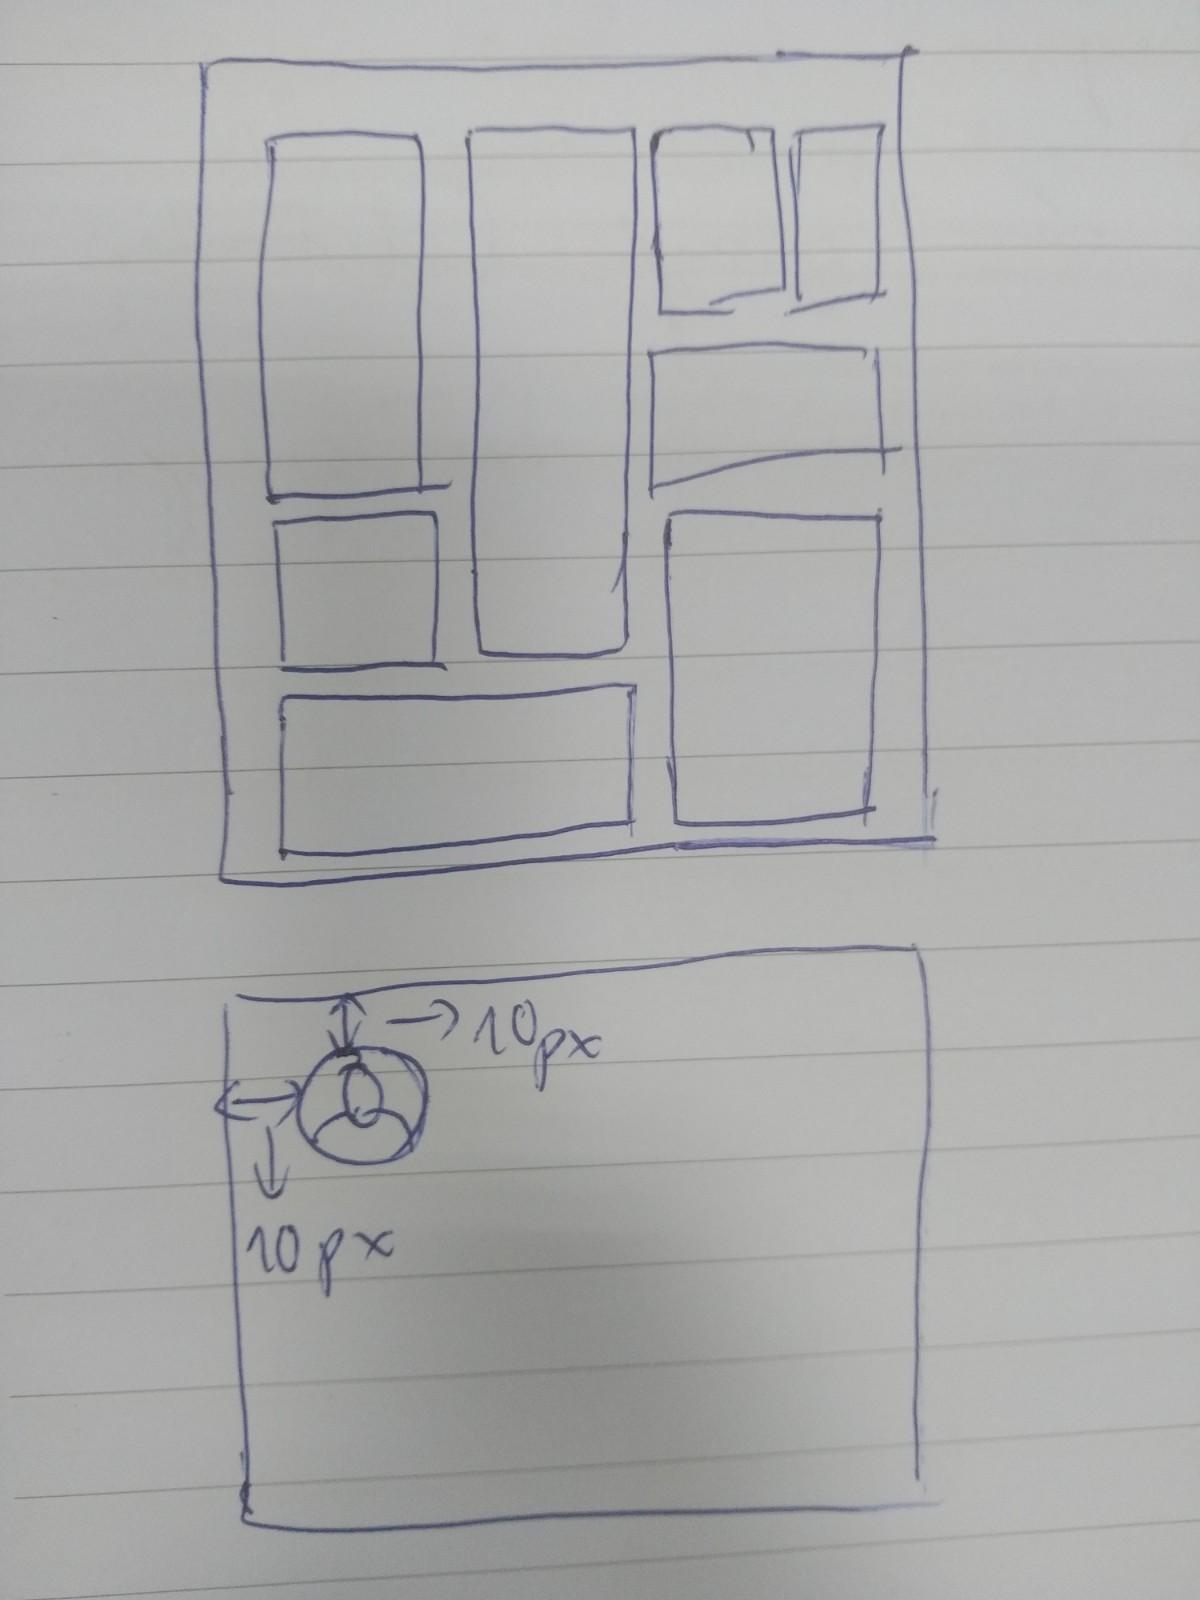 10px
10px